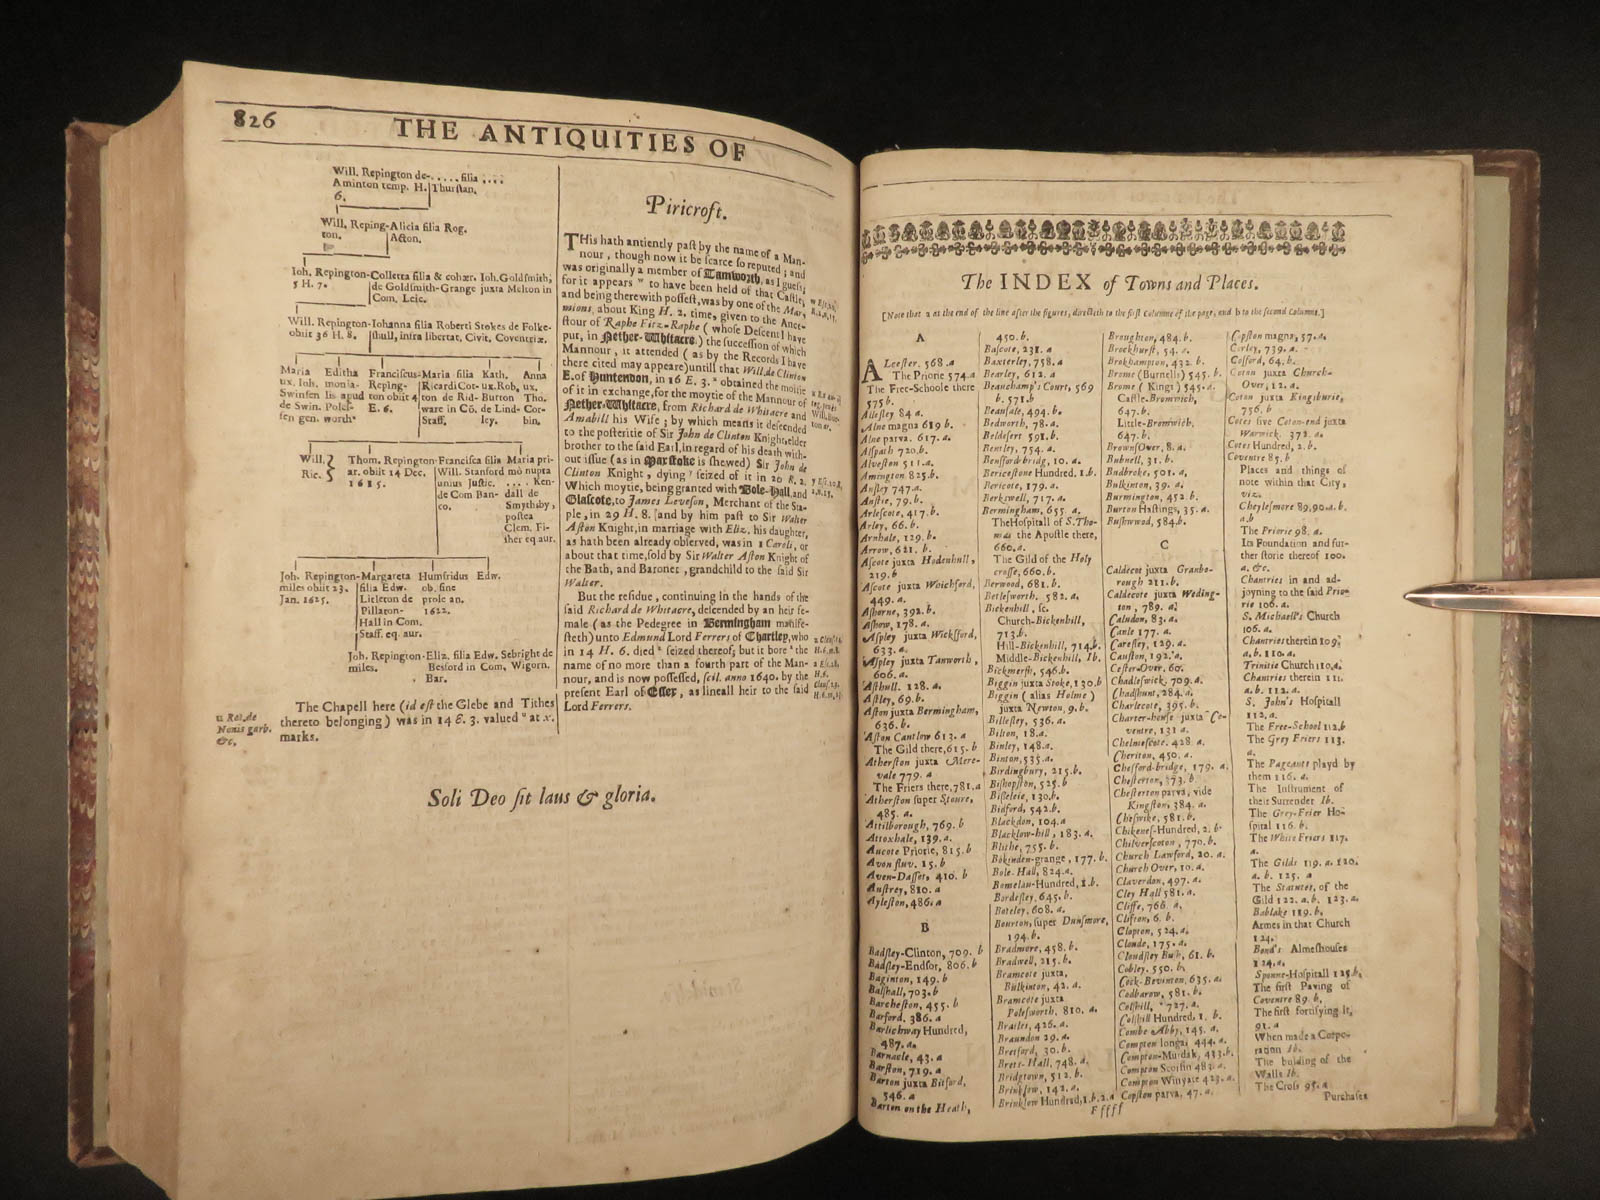 826
THE ANTIQUITIES OF
Will. Repington de-.....filia ....
Aminton temp. H. Thurstan.
6.
Will. Reping-Alicia filia Rog.
ton. Acton.
Ioh. Repington-Colletta filia & cohær. Ioh. Goldsmith,
5 H. 7. de Goldsmith-Grange juxta Melton in
Com. Leic.
Will. Repington-Iohanna filia Roberti Stokes de Folke-
obiit 36 H. 8. shull, infra libertat. Civit. Coventriæ.
Maria Editha Franciscus-Maria filia Kath. Anna
ux. Ioh. monia- Reping- Ricardi Cot- ux. Rob. ux.
Swinfen lis apud ton obiit 4 ton de Rid- Burton Tho.
de Swin. Poles- E. 6. ware in Co. de Lind- Cor-
fen gen. worth Staff. ley. bin.
Will. Thom. Repington-Francisca filia Maria pri-
Ric. ar. obiit 14 Dec. Will. Stanford mo nupta
1615. unius Justic. .... Ken-
de Com Ban- dall de
co. Smythsby,
postea
Clem. Fi-
sher eq. aur.
Joh. Repington-Margareta Humfridus Edw.
miles obiit 23. filia Edw. ob. sine
Jan. 1625. Litleton de prole an.
Pillaton- 1622.
Hall in Com.
Staff. eq. aur.
Joh. Repington-Eliz. filia Edw. Sebright de
miles. Besford in Com. Wigorn.
Bar.
The Chapell here (id est the Glebe and Tithes
thereto belonging) was in 14 E. 3. valued u at x.
marks.
u Rot. de
Nonis garb.
&c,
Piricroft.
THis hath antiently past by the name of a Man-
nour, though now it be scarce so reputed; and
was originally a member of Tamworth, as I guess;
for it appears to have been held of that Castle,
and being therewith possest, was by one of the Mar-
mions, about King H. 2. time, given to the Ance-
stour of Raphe Fitz-Raphe (whose Descent I have
put, in Nether-Whitacre) the succession of which
Mannour, it attended (as by the Records I have
there cited may appeare) untill that Will. de Clinton
E. of Huntendon, in 16 E. 3. obtained the moitie
of it in exchange, for the moytie of the Mannour of
Nether-Whitacre, from Richard de Whitacre and
Amabill his Wife; by which means it descended
to the posteritie of Sir John de Clinton Knight, elder
brother to the said Earl, in regard of his death with-
out issue (as in Maxstoke is shewed) Sir John de
Clinton Knight, dying y seized of it in 20 R. 2.
Which moytie, being granted with Bole-Hall, and
Glascote, to James Leveson, Merchant of the Sta-
ple, in 29 H. 8. [and by him past to Sir Walter
Aston Knight, in marriage with Eliz. his daughter,
as hath been already observed, was in 1 Caroli, or
about that time, sold by Sir Walter Aston Knight of
the Bath, and Baronet, grandchild to the said Sir
Walter.
But the residue, continuing in the hands of the
said Richard de Whitacre, descended by an heir fe-
male (as the Pedegree in Bermingham manife-
steth) unto Edmund Lord Ferrers of Chartley, who
in 14 H. 6. died z seized thereof; but it bore a the
name of no more than a fourth part of the Man-
nour, and is now possessed, scil. anno 1640. by the
present Earl of Essex, as lineall heir to the said
Lord Ferrers.
Soli Deo sit laus & gloria.
The INDEX of Towns and Places.
[Note that a at the end of the line after the figures, directeth to the first Columne of the page, and b to the second Columne.]
A
ALcester. 568. a
The Priorie 574. a
The Free-Schoole there
575 b.
Allesley 84 a.
Alne magna 619 b.
Alne parva. 617. a.
Alspath 720. b.
Alveston 511. a.
Amington 825. b.
Ansley 747. a.
Anstie, 79. b.
Arlescote, 417. b.
Arley, 66. b.
Arnhale, 129. b.
Arrow, 621. b.
Ascote juxta Hodenhull,
219. b
Ascote juxta Woichford,
449. a.
Ashorne, 392. b.
Ashow, 178. a.
Aspley juxta Wicksford,
633. a.
Aspley juxta Tanworth,
606. a.
Asthull. 128. a.
Astley, 69. b.
Aston juxta Bermingham,
636. b.
Aston Cantlow 613. a
The Gild there, 615. b
Atherston juxta Mere-
vale 779. a
The Friers there, 781. a
Atherston super Stoure,
485. a.
Attilborough, 769. b
Attoxhale, 139. a.
Aucote Priorie, 815. b
Avon fluv. 15. b
Aven-Dasset, 410. b
Austrey, 810. a
Ayleston, 486. a
B
Badsley-Clinton, 709. b
Badsley-Endsor, 806. b
Baginton, 149. b
Balshall, 703. b
Barcheston, 455. b
Barford, 386. a
Barlichway Hundred,
487. a.
Barnacle, 43. a
Barston, 719. a
Barton juxta Bitford,
546. a
Barton on the Heath,
450. b.
Bascote, 231. a
Baxterley, 758. a
Bearley, 612. a
Beauchamp's Court, 569
b. 571. b
Beausale, 494. b.
Bedworth, 78. a.
Beldesert 591. b.
Bentley, 754. a.
Bensford-bridg, 10. a.
Bericestone Hundred, 1. b.
Bericote, 179. a.
Berkswell, 717. a.
Bermingham, 655. a.
The Hospitall of S. Tho-
mas the Apostle there,
660. a.
The Gild of the Holy
crosse, 660. b.
Berwood, 681. b.
Betlesworth. 582. a.
Bickenhill, sc.
Church-Bickenhill,
713. b.
Hill-Bickenhill, 714. b.
Middle-Bickenhill, Ib.
Bickmersh, 546. b.
Biggin juxta Stoke, 130. b
Biggin (alias Holme)
juxta Newton, 9. b.
Billesley, 536. a.
Bilton, 18. a.
Binley, 148. a.
Binton, 535. a.
Birdingbury, 215. b.
Bishopston, 525. b
Bisseleie, 130. b.
Bidford, 542. b.
Blackdon, 104. a
Blacklow-hill, 183. a.
Blithe, 755. b.
Bokinden-grange, 177. b.
Bole-Hall, 824. a.
Bomelau-Hundred, 1. b.
Bordesley, 645. b.
Boteley, 608. a.
Bourton, super Dunsmore,
194. b.
Bradmore, 458. b.
Bradwell, 215. b.
Bramcote juxta,
Bulkinton, 42. a.
Bramcote juxta
Polesworth. 810. a.
Brailes, 426. a.
Braundon 29. a.
Bretford, 30. b.
Brets-Hall, 748. a.
Bridgtown, 512. b.
Brinklow, 142. a.
Brinklow Hundred, 1. b. 2. a
Broughton, 484. b.
Brockhurst, 54. a.
Brokhampton, 432. b.
Brome (Burnells) 545. b.
Brome (Kings) 545. a.
Castle-Bromwich,
647. b.
Little-Bromwich,
647. b.
Brownsover, 8. a.
Bubnell, 31. b.
Budbroke, 501. a.
Bulkinton, 39. a.
Burmington, 452. b.
Burton Hastings, 35. a.
Bushwood, 584. b.
C
Caldecot juxta Granbo-
rough 211. b.
Caldecote juxta Weding-
ton, 789. a.
Caludon, 83. a.
Canle 177. a.
Caresley, 129. a.
Causton, 192. a.
Cester-Over. 60.
Chadleswick, 709. a.
Chadshunt, 284. a.
Charlecote, 395. b.
Charter-house juxta Co-
ventre, 131 a.
Chelmescote. 428. a.
Cheriton, 450. a.
Chesford-bridge, 179. a.
Chesterton, 373. b.
Chesterton parva, vide
Kingston, 384. a.
Cheswike, 581. b.
Chikenes-Hundred, 2. b.
Chilverscoton, 770. b.
Church Lawford, 20. a.
Church Over, 10. a.
Claverdon, 497. a.
Cley Hall 581. a.
Cliffe, 766. a.
Clifton, 6. b.
Clopton, 524. a.
Cloude, 175. a.
Cloudsley Bush, 61. b.
Cobley. 550. b.
Cock-Bevinton, 635. a.
Codbarow, 581. b.
Colshill, 727. a.
Colshill Hundred, 1. b.
Combe Abby, 145. a.
Compton longa, 444. a.
Compton-Murdak, 433. b.
Compton Scorfin 483. a.
Compton Winyate 423. a.
Copston parva, 47. a.
Copston magna, 57. a.
Corley, 739. a.
Cosford, 64. b.
Coton juxta Church-
Over, 12. a.
Coton juxta Kingsburie,
756. b
Cotes sive Coton-end juxta
Warwick. 372. a.
Cotes Hundred, 2. b.
Coventre 85. b
Places and things of
note within that City,
viz.
Cheylesmore 89, 90. a. b.
a. b
The Priorie 98. a.
Its Foundation and fur-
ther storie thereof 100.
a. &c.
Chantries in and ad-
joyning to the said Prio-
rie 106. a.
S. Michaell's Church
106. a.
Chantries therein 109.
a. b. 110. a.
Trinitie Church 110. a.
Chantries therein 111.
a. b. 112. a.
S. John's Hospitall
112. a.
The Free-School 112. b
The Grey Friers 113.
a.
The Pageants playd by
them 116. a.
The Instrument of
their Surrender Ib.
The Grey-Frier Ho-
spital 116. b.
The White Friers 117.
a.
The Gilds 119. a. 120.
a. b. 125. a
The Statutes, of the
Gild 122. a. b. 123. a.
Bablake 119. b.
Armes in that Church
124.
Bond's Almeshouses
124. a.
Sponne-Hospitall 125 b.
The first Paving of
Coventre 89. b.
The first fortifying it,
91. a
When made a Corpo-
ration Ib.
The building of the
Walls Ib.
The Cross 95. a
Fffff
Purchases